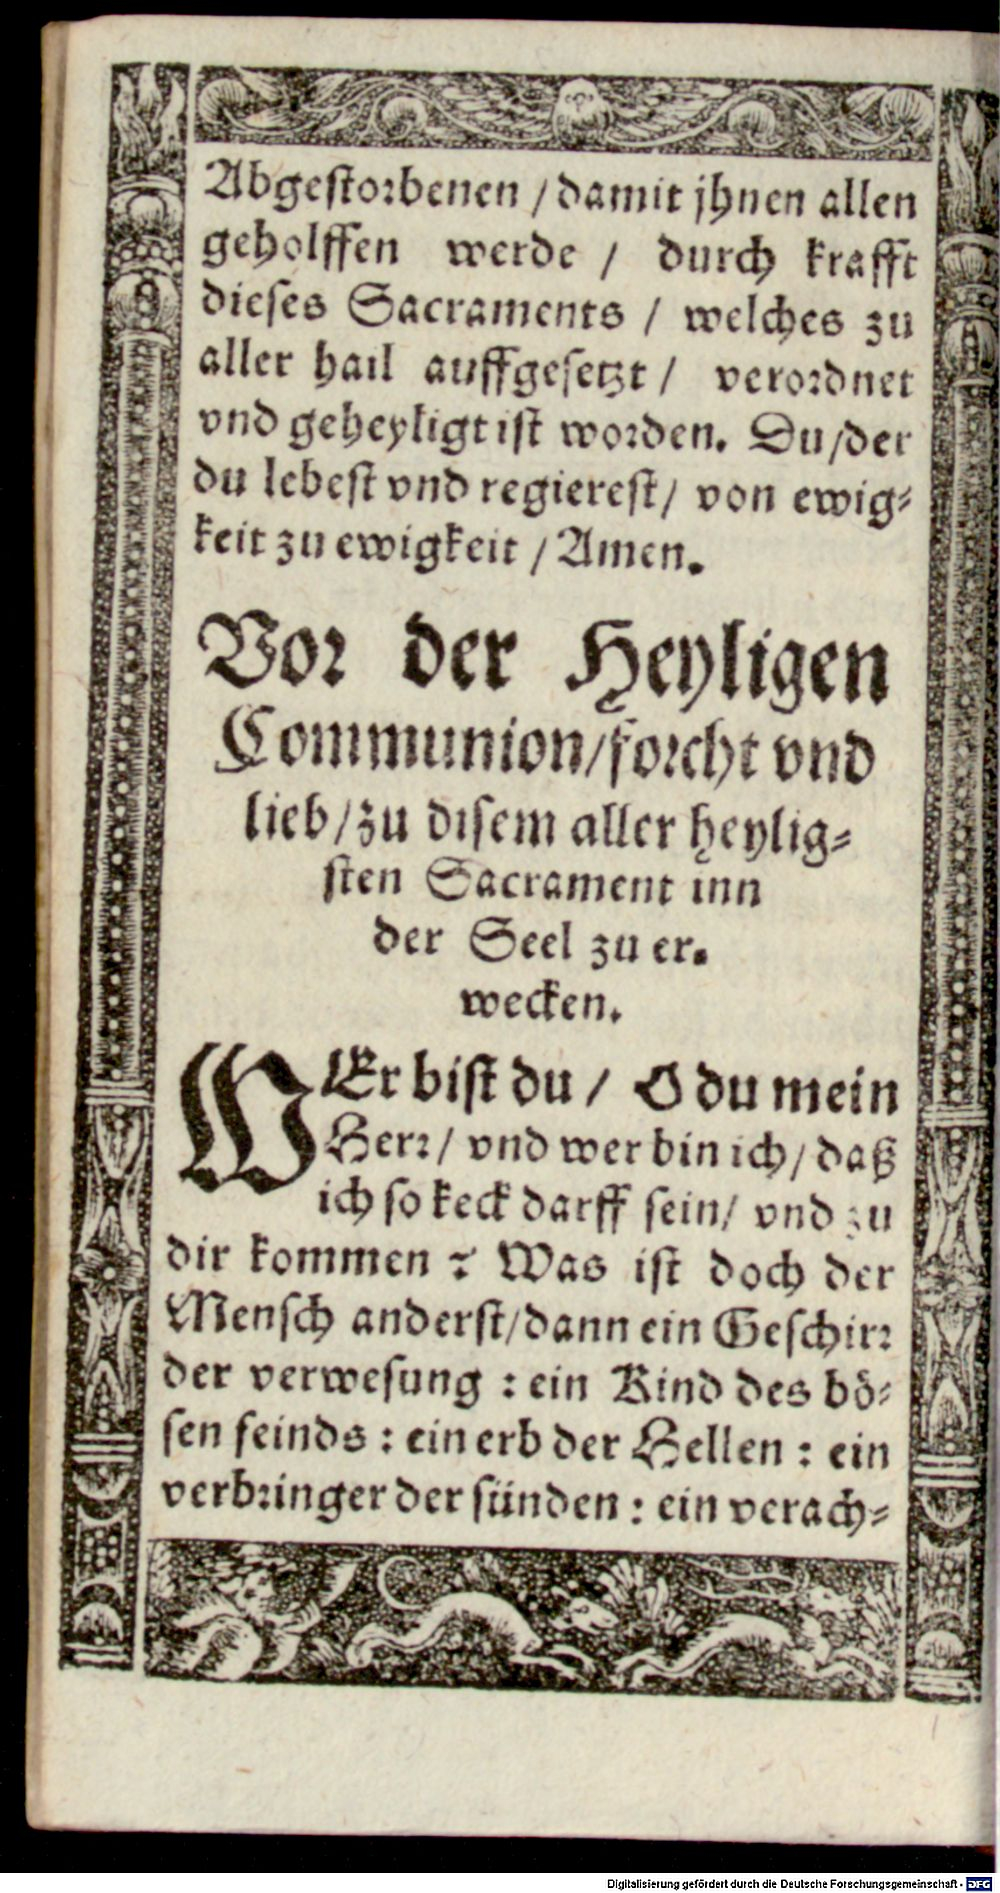 Abgestorbenen / damit jhnen allen
geholffen werde / durch krafft
dieses Sacraments / welches zu
aller hail auffgesetzt / verordnet
vnd geheyligt ist worden. Du / der
du lebest vnd regierest / von ewig-
keit zu ewigkeit / Amen.
Vor der Heyligen
Communion / forcht vnd
lieb / zu disem aller heylig-
sten Sacrament inn
der Seel zu er-
wecken.
WEr bist du / O du mein
Herr / vnd wer bin ich / daß
ich so keck darff sein / vnd zu
dir kommen? Was ist doch der
Mensch anderst / dann ein Geschirr
der verwesung : ein Kind des bö-
sen feinds : ein erb der Hellen : ein
verbringer der sünden : ein verach-
Digitalisierung gefördert durch die Deutsche Forschungsgemeinschaft - DFG